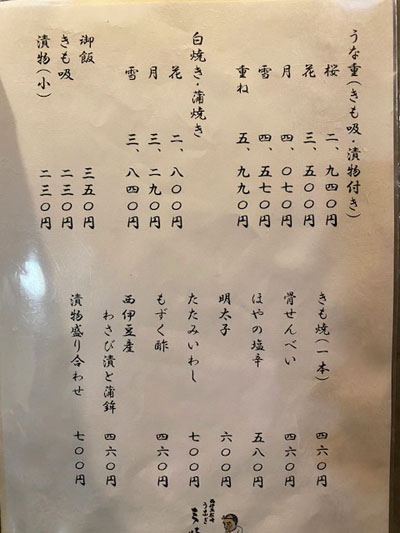 うな重(きも吸・漬物付き)
桜 二、九四〇円
花 三、五〇〇円
月 四、〇七〇円
雪 四、五七〇円
重ね 五、九九〇円
白焼き・蒲焼き
花 二、八〇〇円
月 三、二九〇円
雪 三、八四〇円
御飯 三五〇円
きも吸 二三〇円
漬物(小) 二三〇円
きも焼(一本) 四六〇円
骨せんべい 四六〇円
ほやの塩辛 五八〇円
明太子 六〇〇円
たたみいわし 七〇〇円
もずく酢 四六〇円
西伊豆産
わさび漬と蒲鉾 四六〇円
漬物盛り合わせ 七〇〇円
うなぎ